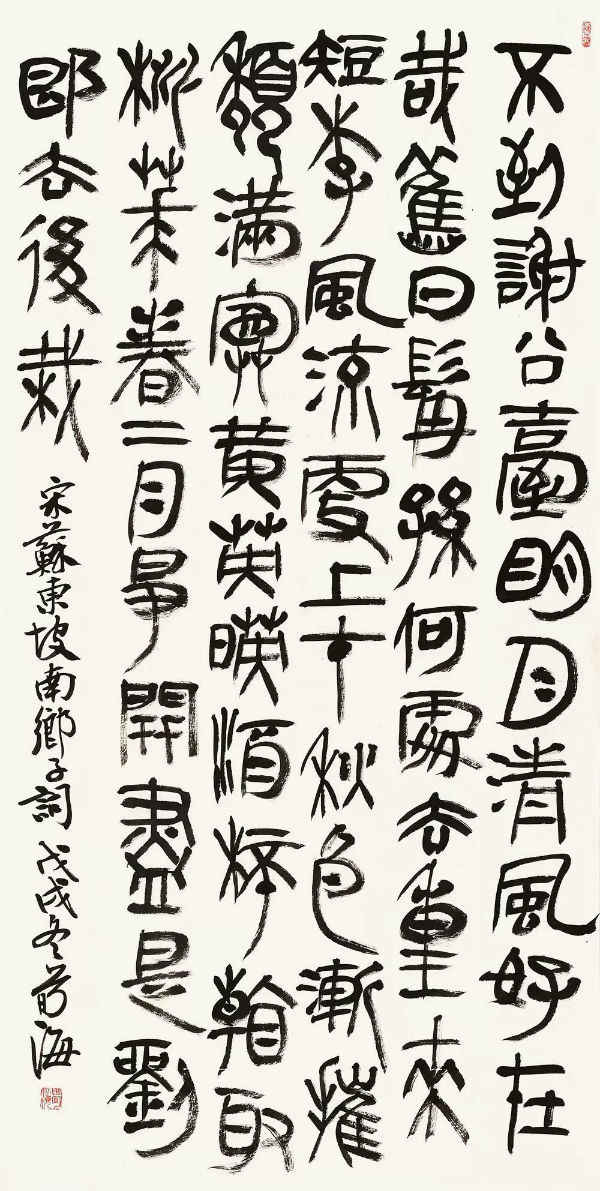 不到謝公臺明月清風好在
哉舊日髯孫何處去重來
短李風流更上才秋色漸摧
頹滿寏黃英暎酒杯看取
桃花春二月爭開盡是劉
郎去後栽
宋蘇東坡南鄉子詞 戊戌冬 海